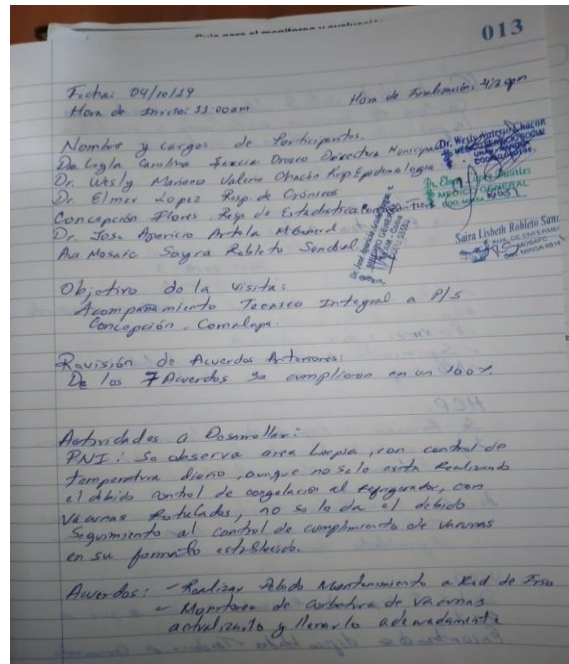 Guía para el monitoreo y evaluación
013
Fecha: 04/10/19 Hora de Finalización: 4:20 pm
Hora de Inicio: 11:00am
Nombre y cargos de Participantes.
Dra Leyla Carolina García Orozco Directora Municipal
Dr. Wesly Valerio Chacón Resp. Epidemiología
Dr. Wesly Valerio Chacon
MEDICO SERVICIO SOCIAL
Dr. Elmer Lopez Resp. de Crónicos
MEDICO GENERAL
Concepción Flores Resp. de Estadística
Dr. Jose Aparicio Artola M General
Aux. Mosafc Sayra Robleto Sandoval
Saira Lisbeth Robleto
AUX. DE ENFERMERIA
MOSAFC
Objetivo de la visita:
Acompañamiento Tecnico Integral a P/S
Concepción. Comalapa.
Revisión de Acuerdos Anteriores:
De los 7 Acuerdos se cumplieron en un 100%.
Actividades a Desarrollar:
PNI: Se observa area limpia, con control de
temperatura diario, aunque no se le está Realizando
el debido control de congelación al Refrigerador, con
vacunas Rotuladas, no se le da el debido
Seguimiento al control de cumplimiento de vacunas
en su formato establecido.
Acuerdos: - Realizar debido Mantenimiento a Red de Frio
- Monitoreo de cobertura de vacunas
actualizarlo y llenarlo adecuadamente